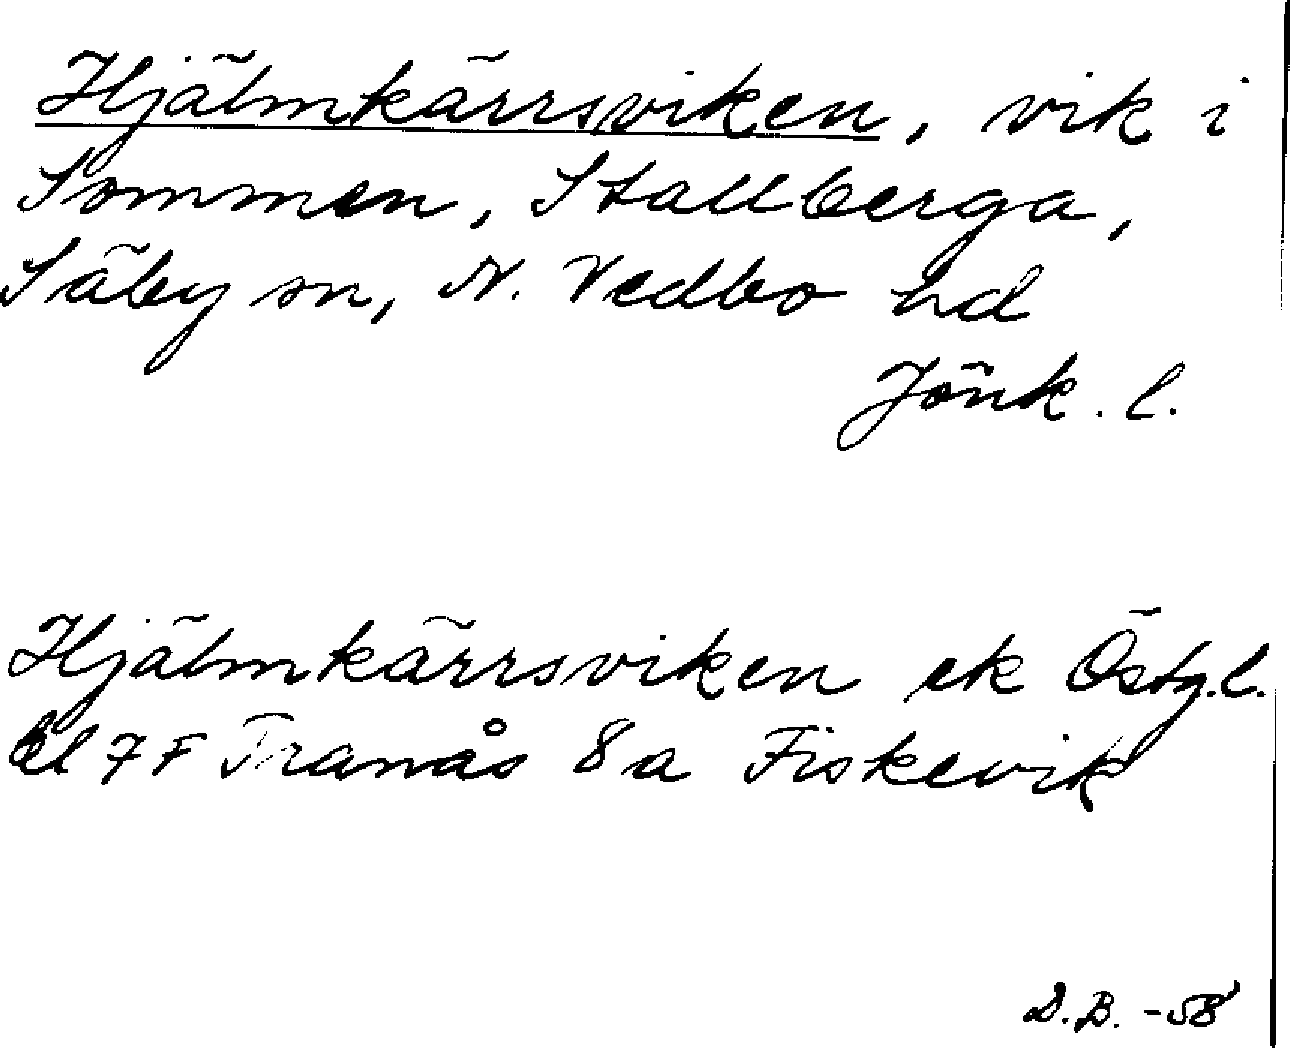 Hjälmkärrsviken, vik i
Sommen, Stallberga,
Säby sn, N. Vedbo hd
Jönk. l.
Hjälmkärrsviken ek Östg.l.
bl 7 F Tranås 8 a Fiskevik
D.B. -58